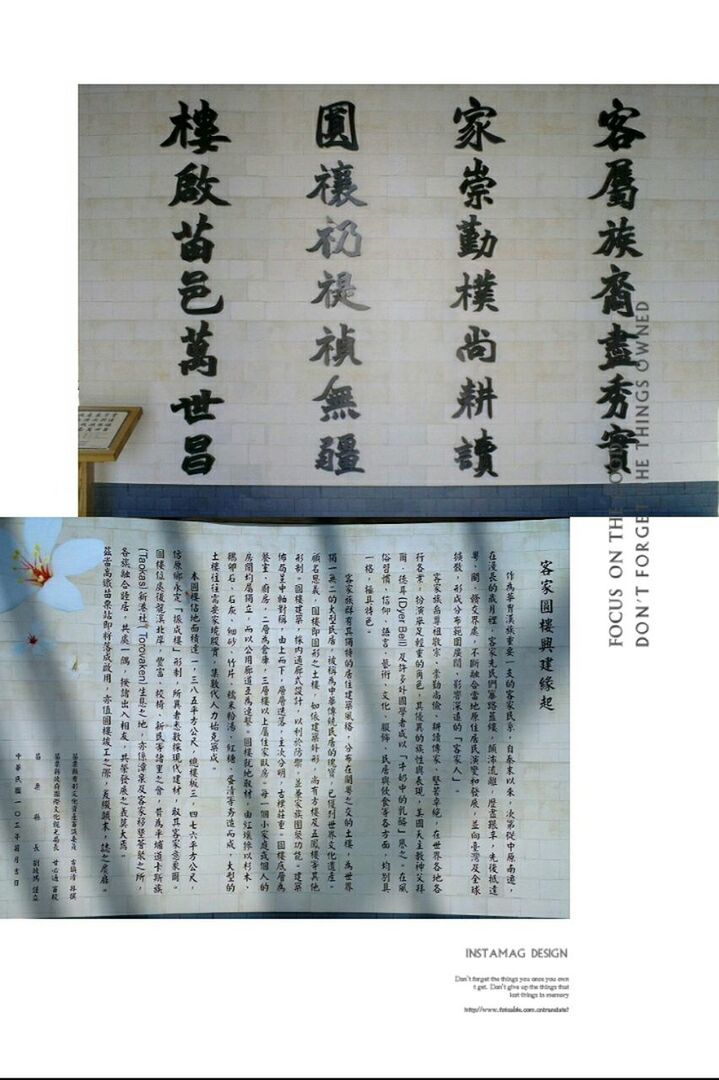 客屬族裔盡秀實
家崇勤樸尚耕讀
圓禳礽禔禎無疆
樓啟苗邑萬世昌
FOCUS ON THE
DON'T FORGET THE THINGS OWNED
客家圓樓興建緣起
作為華胄漢族重要一支的客家民系，自秦末以來，次第從中原南遷，
在漫長的歲月裡，客家先民們篳路藍縷，顛沛流離，歷盡艱辛，先後抵達
粵、閩、贛交界處，不斷融合當地原住居民演變和發展，並向臺灣及全球
候散，形成分布範圍廣闊、影響深遠的「客家人」。
客家族裔尊祖敬宗、崇勤尚儉、耕讀傳家、堅苦卓絕，在世界各地各
行各業，扮演舉足輕重的角色，其優異的族性與表現，美國天主教神父拜
爾·德耳(Dyer Bell)及許多外國學者咸以「牛奶中的乳酪」譽之。在風
俗習慣、信仰、語言、藝術、文化、服飾、民居與飲食等各方面，均別具
一格，極具特色。
客家族群有其獨特的居住建築風格，分布在閩粵之交的土樓，為世界
獨一無二的大型民居，被稱為中華傳統民居的瑰寶，已獲列世界文化遺產。
顧名思義，圓樓即圓形之土樓，如依建築外形，尚有方樓及五鳳樓等其他
形制。圓樓建築，採內通廊式設計，以利於防禦，並兼家族團聚功能。建築
佈局呈中軸對稱，由上而下，層層遞落，主次分明，古樸莊重。圓樓底層為
餐室、廚房，二層為倉庫，三層樓以上屬住家臥房。每一個小家庭或個人的
房間均屬獨立，而以公用廊道互為連繫。圓樓就地取材，由紅壤摻以杉木、
鵝卵石、石灰、細砂、竹片、糯米粉湯、紅糖、蛋清等夯造而成，大型的
土樓往往需要家境殷實，集數代人力始克築成。
本圓樓佔地面積達一，三八五平方公尺，總樓板三，四七六平方公尺，
仿原鄉永定「振成樓」形制，所異者悉數採現代建材，取其客家意象爾。
圓樓位處後龍溪北岸，豐富、校椅、新民等諸里之會，昔為平埔道卡斯族
(Taokas)新港社"Torovaken)生息之地，亦係漳泉及客家移墾薈聚之所，
各族融合雜居，共處一隅，挨諸出入相友，共榮發展之義莫大焉。
茲當高鐵苗栗站即將落成啟用，亦值圓樓竣工之際，爰綴顛末，誌之屋廡。
苗栗縣有形文化資產審議委員 古鎮清 撰
苗栗縣政府國際文化觀光局長 甘必通 審校
苗栗縣長 劉政鴻 謹立
中華民國一〇三年
月吉日
INSTAMAG DESIGN
Don't forget the things you once you own
t get. Don't give up the things that
lost things in memory